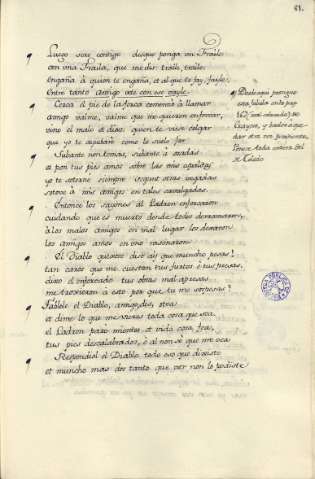 61.
Luego seré contigo desque ponga un Fraile
con una Fraila, que me dis: traile, traile
engaña à quien te engaña, et al que te fay, faile
Entre tanto amigo vete con ese bayle.
Cerca el pie de la forca comenzó à llamar
amigo valme, valme que me quieren enforcar,
vino el malo et dixo: quien te viese colgar
que yo te ayudaré como lo suelo far
Subante non temas, subante à osadas
et pon tus pies amos sobre las mis espaldas
yo te soterné siempre segunt otras vegadas
sotove à mis amigos en tales cavalgadas.
Entonce los sayones al Ladron enforcaron
cuidando que es muerto dende todos derramaron,
à los malos amigos en mal lugar los dexaron
los amigos amos en uno razonaron
El Diablo quexose dis: ay que mucho pesas!
tan caros que me cuestan tus furtos è tus presas,
dixo el enforcado tus obras mal apresas
me troxieron à esto por que tu me sorpesas.
Fablole el Diablo, amigo, dis, otea
et dime lo que vieres toda cosa que sea
el Ladron paró mientes et vido cosa fea,
tus pies descalabrados, è al non se que me vea
Respondiol el Diablo todo eso que dixiste
et muncho mas dos tanto que ver non lo podiste
Desde aqui prosigue
esta fabula en la pag.
de Gayoso, y vuelve à que-
dar otra vez pendiente,
Ponese toda entera del
de Toledo